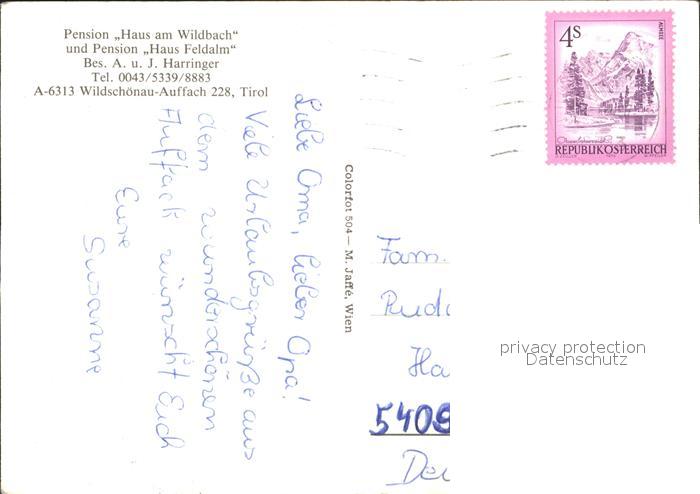 Pension „Haus am Wildbach“
und Pension „Haus Feldalm“
Bes. A. u. J. Harringer
Tel. 0043/5339/8883
A-6313 Wildschönau-Auffach 228, Tirol
Liebe Oma, lieber Opa!
Viele Urlaubsgrüße aus
dem wunderschönen
Auffach wünscht Euch
Eure
Susanne
Colorfot 504 — M. Jaffé, Wien
4 S
ALMSEE
REPUBLIK ÖSTERREICH
Fam.
Rudo
Ha
5409
Deu
privacy protection
Datenschutz